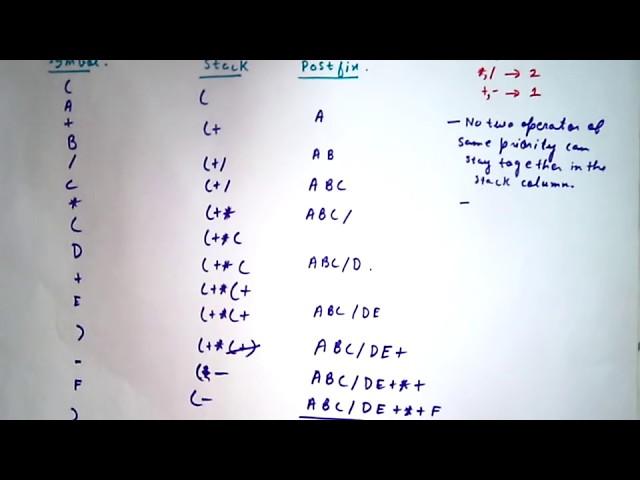 Symbol. Stack Postfix.
(
(
A
A
+
(+
B
AB
/
(+/
C
(+/
ABC
*
(+*
ABC/
(
(+*(
D
(+*(
ABC/D.
+
(+*(+
E
(+*(+
ABC/DE
)
(+*(+)
ABC/DE+
-
(* -
ABC/DE+*+
F
(-
ABC/DE+*+F
)
*,/ → 2
+,- → 1
- No two operator of
same priority can
stay together in the
stack column.
-